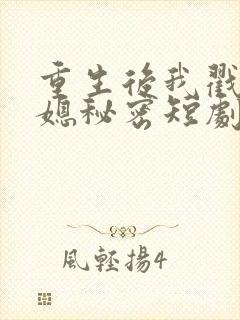 重生後我戳
媳秘密短劇
風輕揚4